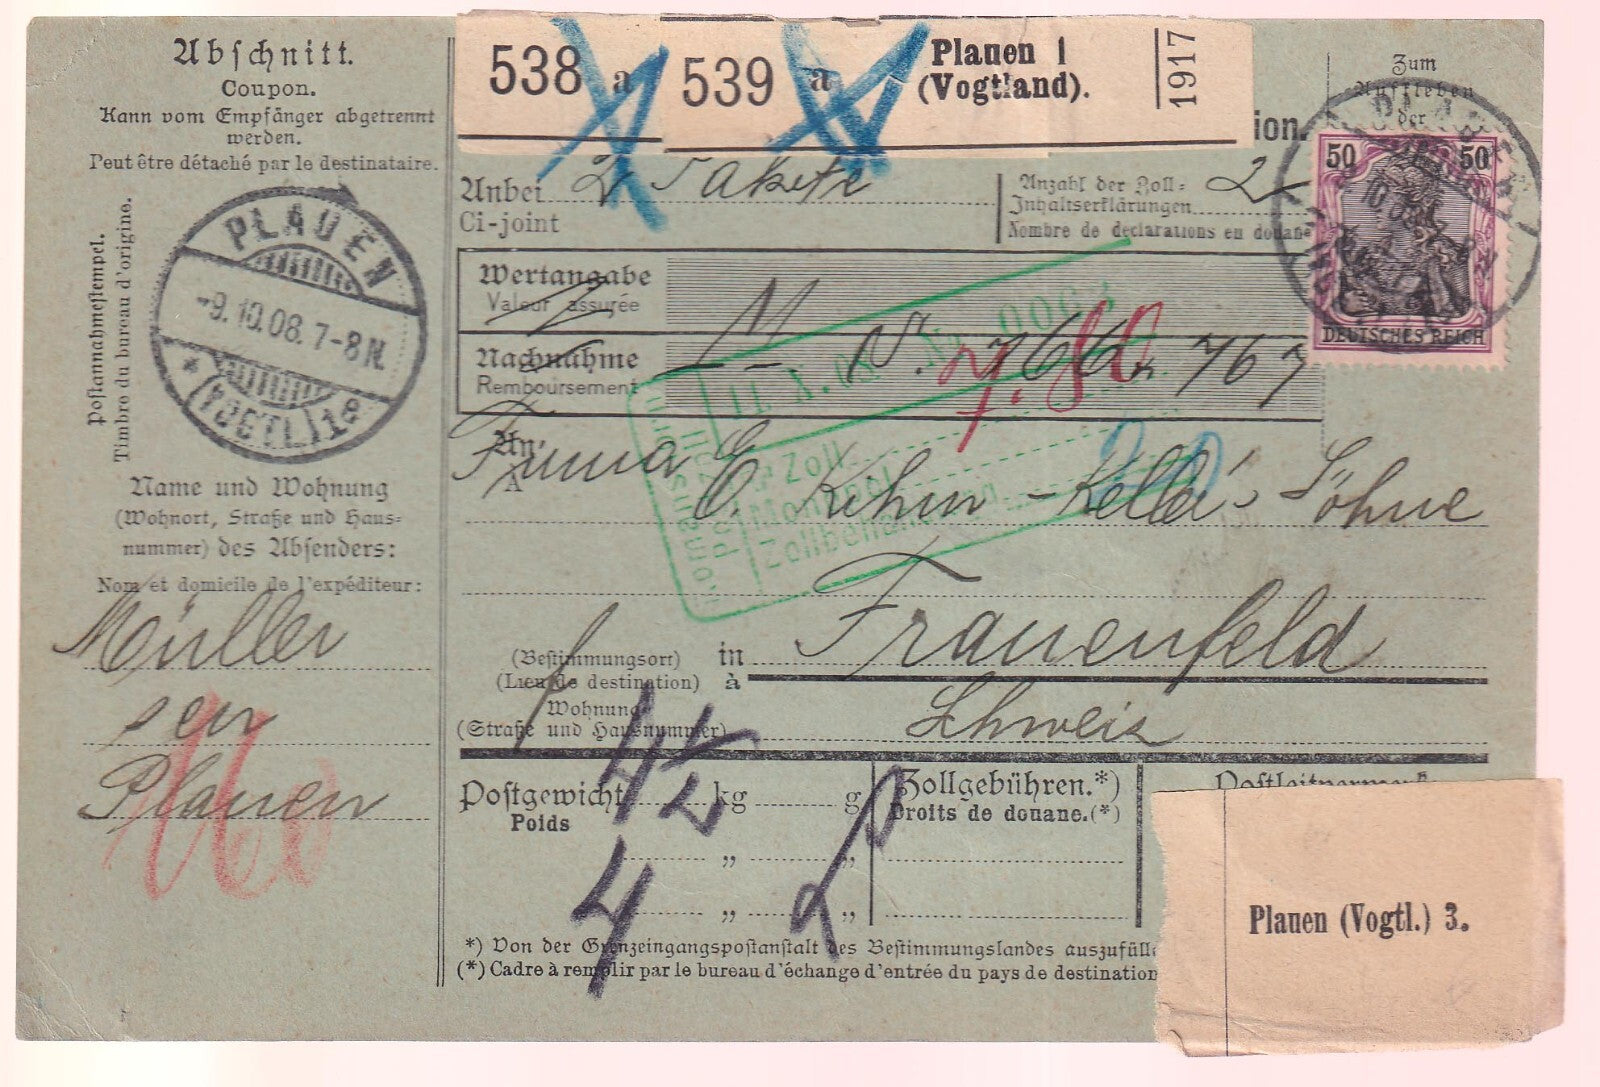 Abschnitt.
Coupon.
Kann vom Empfänger abgetrennt
werden.
Peut être détaché par le destinataire.
Postannahmestempel.
Timbre du bureau d'origine.
PLAUEN
-9.10.08.7-8N.
*(VOGTL.)1g
Name und Wohnung
(Wohnort, Straße und Haus-
nummer) des Absenders:
Nom et domicile de l'expéditeur:
Müller
sen
Plauen
538 a
539 a
Plauen 1
(Vogtland).
1917
ion.
Zum
Aufkleben
der
Anbei 2 Pakete
Ci-joint
Anzahl der Zoll-
Inhaltserklärungen 2
Nombre de déclarations en douane
Wertangabe
Valeur assurée
Nachnahme
Remboursement
M N. 766 767
7.80
11.X.08 No 0063
Zoll
Zollbehandlung
20
50 50
DEUTSCHES REICH
An
A
Firma
in Frauenfeld
à
(Bestimmungsort)
(Lieu de destination)
Wohnung
(Straße und Hausnummer)
Schweiz
Postgewicht kg g
Poids
„ „
„ „
4
Zollgebühren.*)
Droits de douane.(*)
*) Von der Grenzeingangspostanstalt des Bestimmungslandes auszufülle
(*) Cadre à remplir par le bureau d'échange d'entrée du pays de destination
Plauen (Vogtl.) 3.